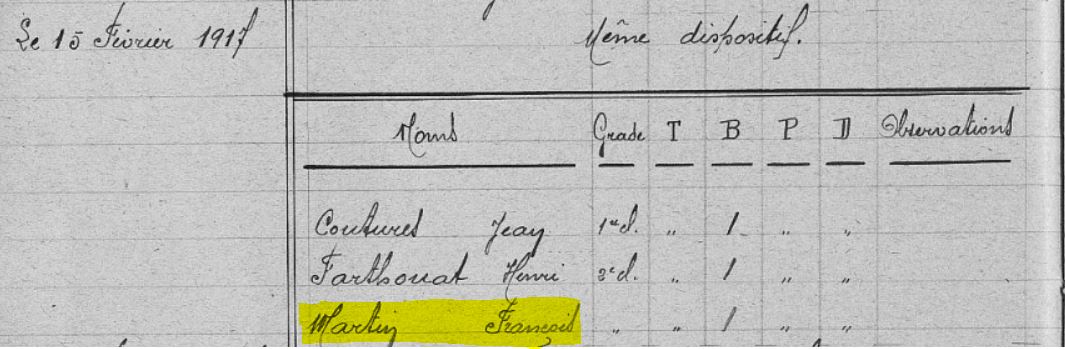 Le 15 Février 1917 Même dispositif.
Noms Grade T B P D Observations
Coutures Jean 1e cl. " 1 " "
Farthouat Henri 2e cl. " 1 " "
Martin François " " 1 " "